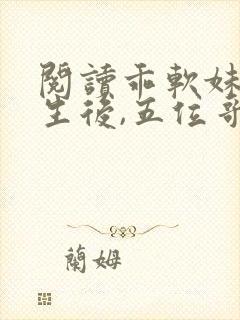 閱讀乖軟妹
生後,五位哥
蘭姆